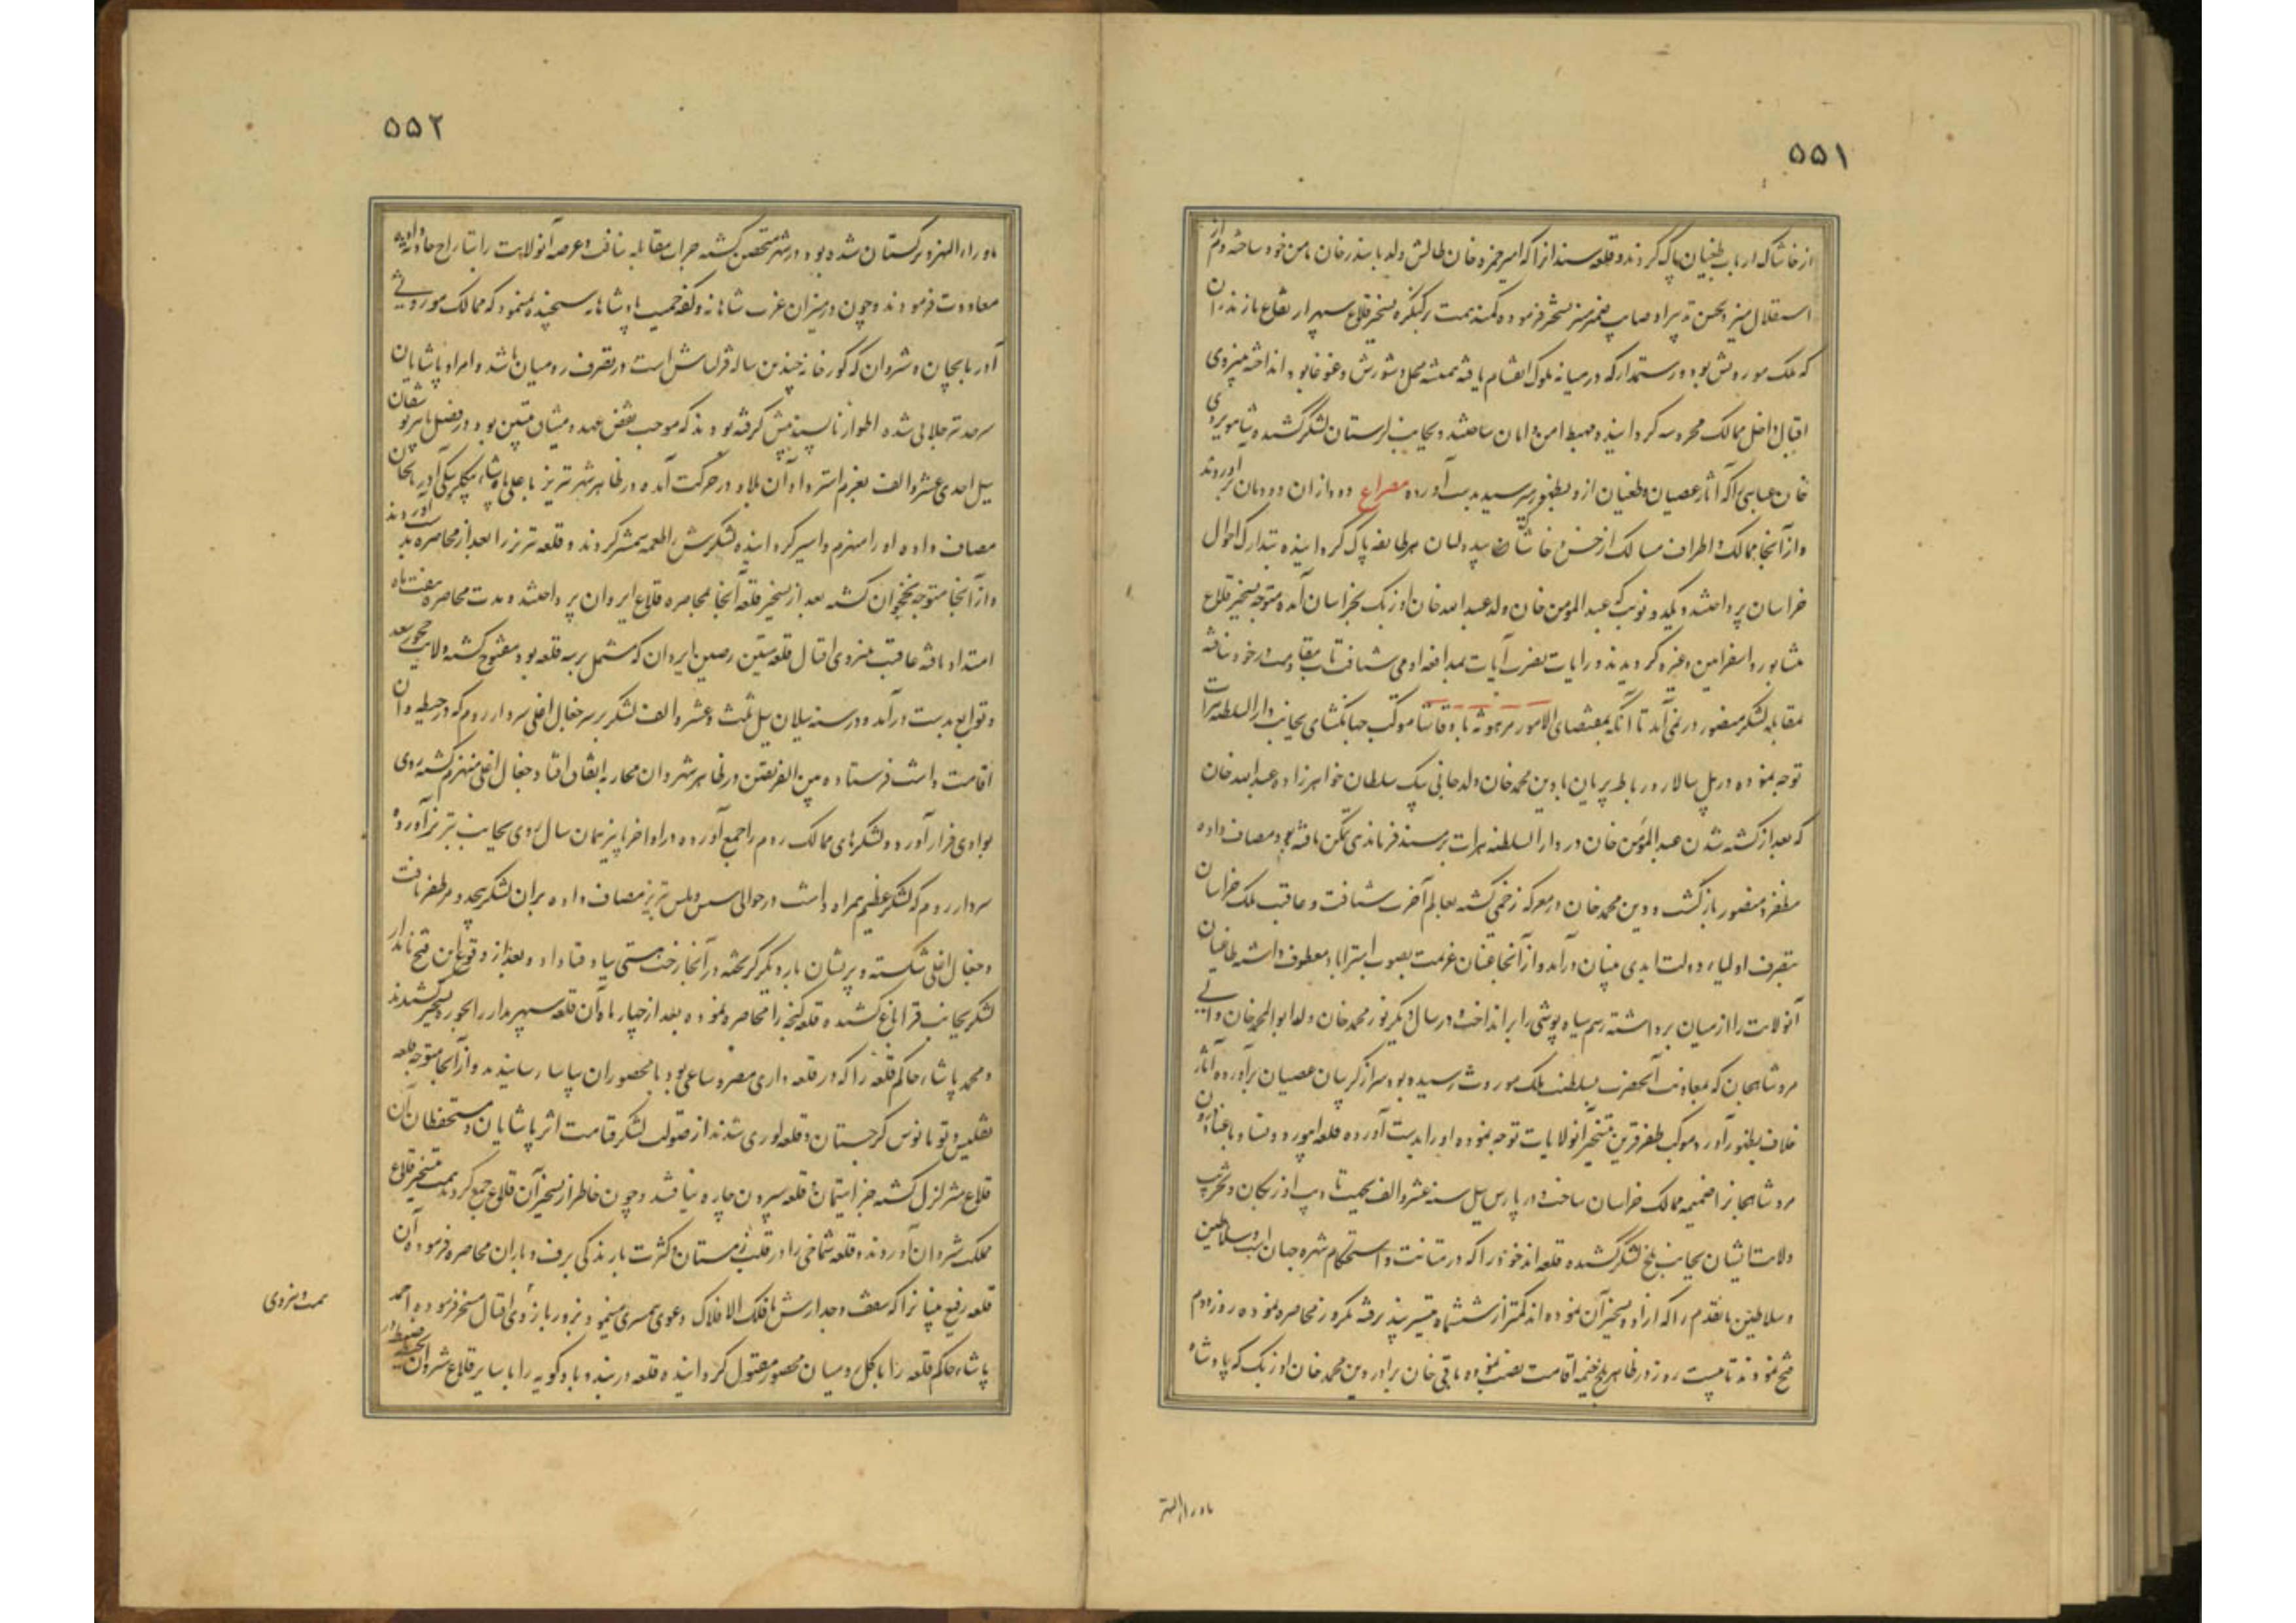 ۵۵۱
از خاشاک ارباب طغیان پاک کردند و قلعه سند از آنکه امیر حمزه خان طالش ولد بایندر خان مامن خود ساخته دم از
استقلال میزد بحسن تدبیر او صایب ضمیر منیر مسخر فرموده کمند همت بر کنگره تسخیر قلاع سپهر ارتفاع مازندران
که ملک موروثی بود و رستمدار که در میانه ملوک انقسام یافته همیشه محل شورش و غوغا بود انداخته به نیروی
اقبال داخل ممالک محروسه گردانیده مهبط امن و امان ساختند و بجانب لرستان لشکر کشیده شاهویردی
خان عباسی را که آثار عصیان و طغیان ازو بظهور میرسید بدست آورده مصراع دود از آن دودمان برآوردند
و از آنجا ممالک و اطراف مسالک از خس و خاشاک بیدولتان هر طایفه پاک گردانیده بتدارک احوال
خراسان پرداختند و یکدو نوبت که عبدالمومن خان ولد عبدالله خان اوزبک بخراسان آمده متوجه تسخیر قلاع
نشابور و اسفراین و غیره گردیدند و رایات نصرت آیات بمدافعه او می شتافت تاب مقاومت در خود نیافته
بمقابله لشکر منصور در نمی آمد تا آنکه بمقتضای الامور مرهونة باوقاتها موکب جهانگشای بجانب دارالسلطنه هرات
توجه نموده در پل سالار و رباط پریان با دین محمد خان ولد جانی بیک سلطان خواهرزاده عبدالله خان
که بعد از کشته شدن عبدالمومن خان در دارالسلطنه هرات بر مسند فرماندهی تمکن یافته بود مصاف داده
مظفر و منصور بازگشت و دین محمد خان در معرکه زخمی گشته بعالم آخرت شتافت و عاقبت ملک خراسان
بتصرف اولیاء دولت ابدی بنیان درآمد و از آنجا عنان عزیمت بصوب استراباد معطوف داشته طاغیان
آنولایت را از میان برداشته رسم سیاه پوشی را برانداخت و در سال دیگر نور محمد خان ولد ابوالمحمد خان والی
مرو شاهجان که بمعاونت آنحضرت بسلطنت ملک موروث رسیده بود سر از گریبان عصیان برآورده آثار
خلاف بظهور آورد موکب ظفر قرین بتسخیر آنولایات توجه نموده او را بدست آورده قلعه ابیورد و نسا و باغباد و درون
مرو شاهجانرا ضمیمه ممالک خراسان ساخت و در پارس ئیل سنه عشر و الف بجهت تادیب اوزبکان و تخریب
ولایت ایشان بجانب بلخ لشکر کشیده قلعه اندخود را که در متانت و استحکام شهره جهان است و سلاطین
و سلاطین ماتقدم را که اراده تسخیر آن نموده اند کمتر از ششماه میسر نپذیرفته یکروز محاصره نموده روز دوم
فتح نمودند تا بیست روز در ظاهر بلخ خیمه اقامت نصب نموده باقی خان برادر دین محمد خان اوزبک که پادشاه
ماوراءالنهر
۵۵۲
ماوراءالنهر و ترکستان شده بود در شهر متحصن گشته جرات مقابله نیافت و عرصه آنولایت را بتاراج حادثه داده
معاودت فرمودند و چون در میزان غیرت شاهانه و کفه حمیت پادشاهانه سنجیده نمینمود که ممالک موروثی
آذربایجان و شروان که گورخانه چندین ساله قزلباش است در تصرف رومیان باشد و امراء و پاشایان
سرحد نیز جلالی شده اطوار ناپسند پیش گرفته بودند که موجب نقض عهد و میثاق متبین بود در فصل پائیز توشقان
ئیل احدی عشر و الف بعزم استرداد آن بلاد در حرکت آمده در ظاهر شهر تبریز با علی پاشاء بیگلربیگی آذربایجان
مصاف داده او را منهزم و اسیر گردانیده لشکرش را طعمه شمشیر کردند و قلعه تبریز را بعد از محاصره بدست آوردند
و از آنجا متوجه نخجوان گشته بعد از تسخیر قلعه آنجا بمحاصره قلاع ایروان پرداختند و مدت محاصره هفت ماه
امتداد یافته عاقبت به نیروی اقبال قلعه متین رصین ایروان که مشتمل بر سه قلعه بود مفتوح گشته ولایت چخور سعد
و توابع بدست درآمد و در سنه ئیلان ئیل ثلث و عشر و الف لشکر بر سر جغال اغلی سردار روم که در حیطه وان
اقامت داشت فرستاده بین الفریقین در ظاهر شهر وان محاربه اتفاق افتاد و جغال اغلی منهزم گشته روی
بوادی فرار آورد و لشکرهای ممالک روم را جمع آورده در اواخر پائیز همان سال روی بجانب تبریز آورده
سردار روم که لشکر عظیم همراه داشت در حوالی سیس و ملس تبریز مصاف داده بران لشکر بیحد و مر ظفر یافت
و جغال اغلی شکسته و پریشان بار دیگر گریخته در آنجا رخت هستی بباد فنا داد و بعد از وقوع این فتح نامدار
لشکر بجانب قراباغ کشیده قلعه گنجه را محاصره نموده بعد از چهار ماه آن قلعه سپهر مدار را بحوزه تسخیر کشیدند
و محمد پاشاء حاکم قلعه را که در قلعه داری مصر و ساعی بود با محصوران بیاسا رسانیدند و از آنجا متوجه قلعه
تفلیس و تومانوس گرجستان و قلعه لوری شدند از صولت لشکر قیامت اثر پاشایان و مستحفظان آن
قلاع متزلزل گشته جز استیمان و قلعه سپردن چاره نیافتند و چون خاطر از تسخیر آن قلاع جمع گردید همت بتسخیر قلاع
مملکت شروان آوردند و قلعه شماخی را در قلب زمستان و کثرت بارندگی برف و باران محاصره فرموده آن
قلعه رفیع بنیانرا که سقف و جدارش با فلک الافلاک دعوی همسری مینمود بزور بازوی اقبال مسخر فرموده احمد
پاشاء حاکم قلعه را با کل رومیان محصور مقتول گردانیده قلعه دربند و بادکوبه را با سایر قلاع شروان